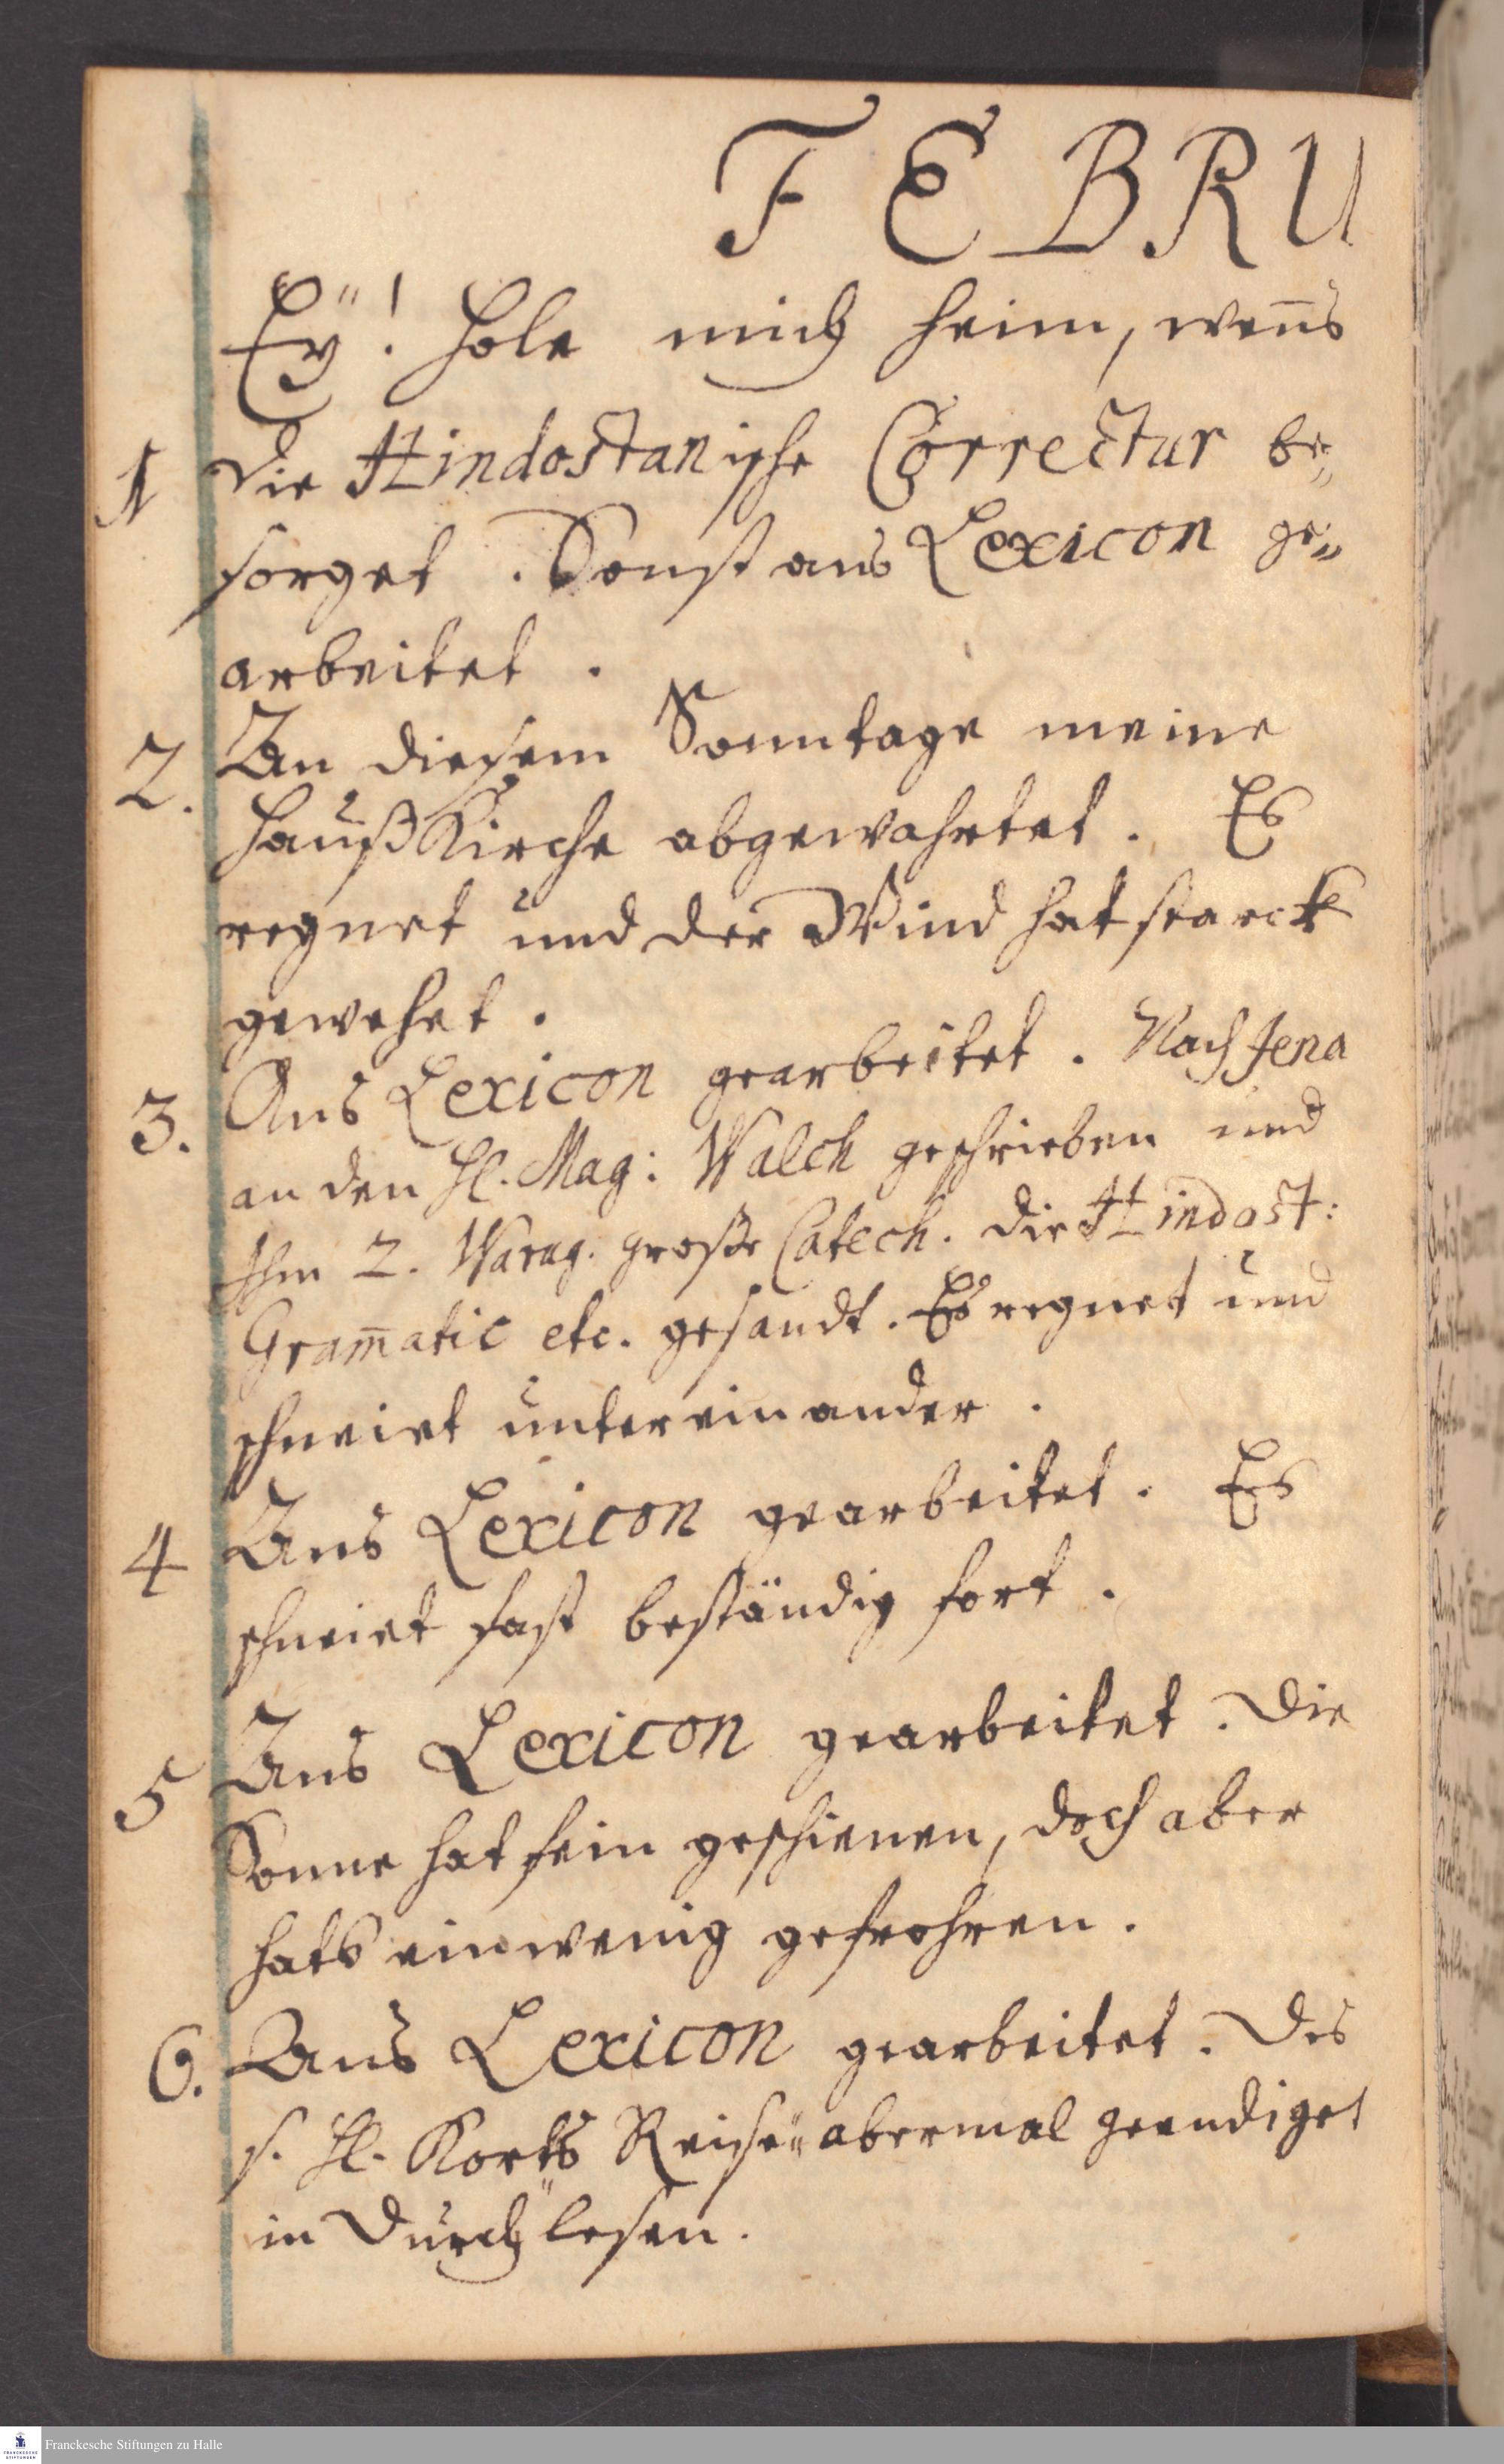 FEBRU
Eÿ! hole mich heim, wen̄s
1 Die Hindostanische Correctur be„
sorget. Sonst ans Lexicon ge„
arbeitet.
2. An diesem Sonntage meine
HaußKirche abgewahrtet. Es
regnet und der Wind hat starck
gewehet.
3. Ans Lexicon gearbeitet. Nach Jena
an den H. Mag: Walch geschrieben und
Ihm 2. Warug. große Catech. die Hindost:
Gram̄atic etc. gesandt. Es regnet und
schneiet untereinander.
4 Ans Lexicon gearbeitet. Es
schneiet fast beständig fort.
5 Ans Lexicon gearbeitet. Die
Sonne hat fein geschienen, doch aber
hats ein wenig gefrohren.
6. Ans Lexicon gearbeitet. Des
s. H. Korts Reise„ abermal geendiget
in Durch„lesen.
Franckesche Stiftungen zu Halle